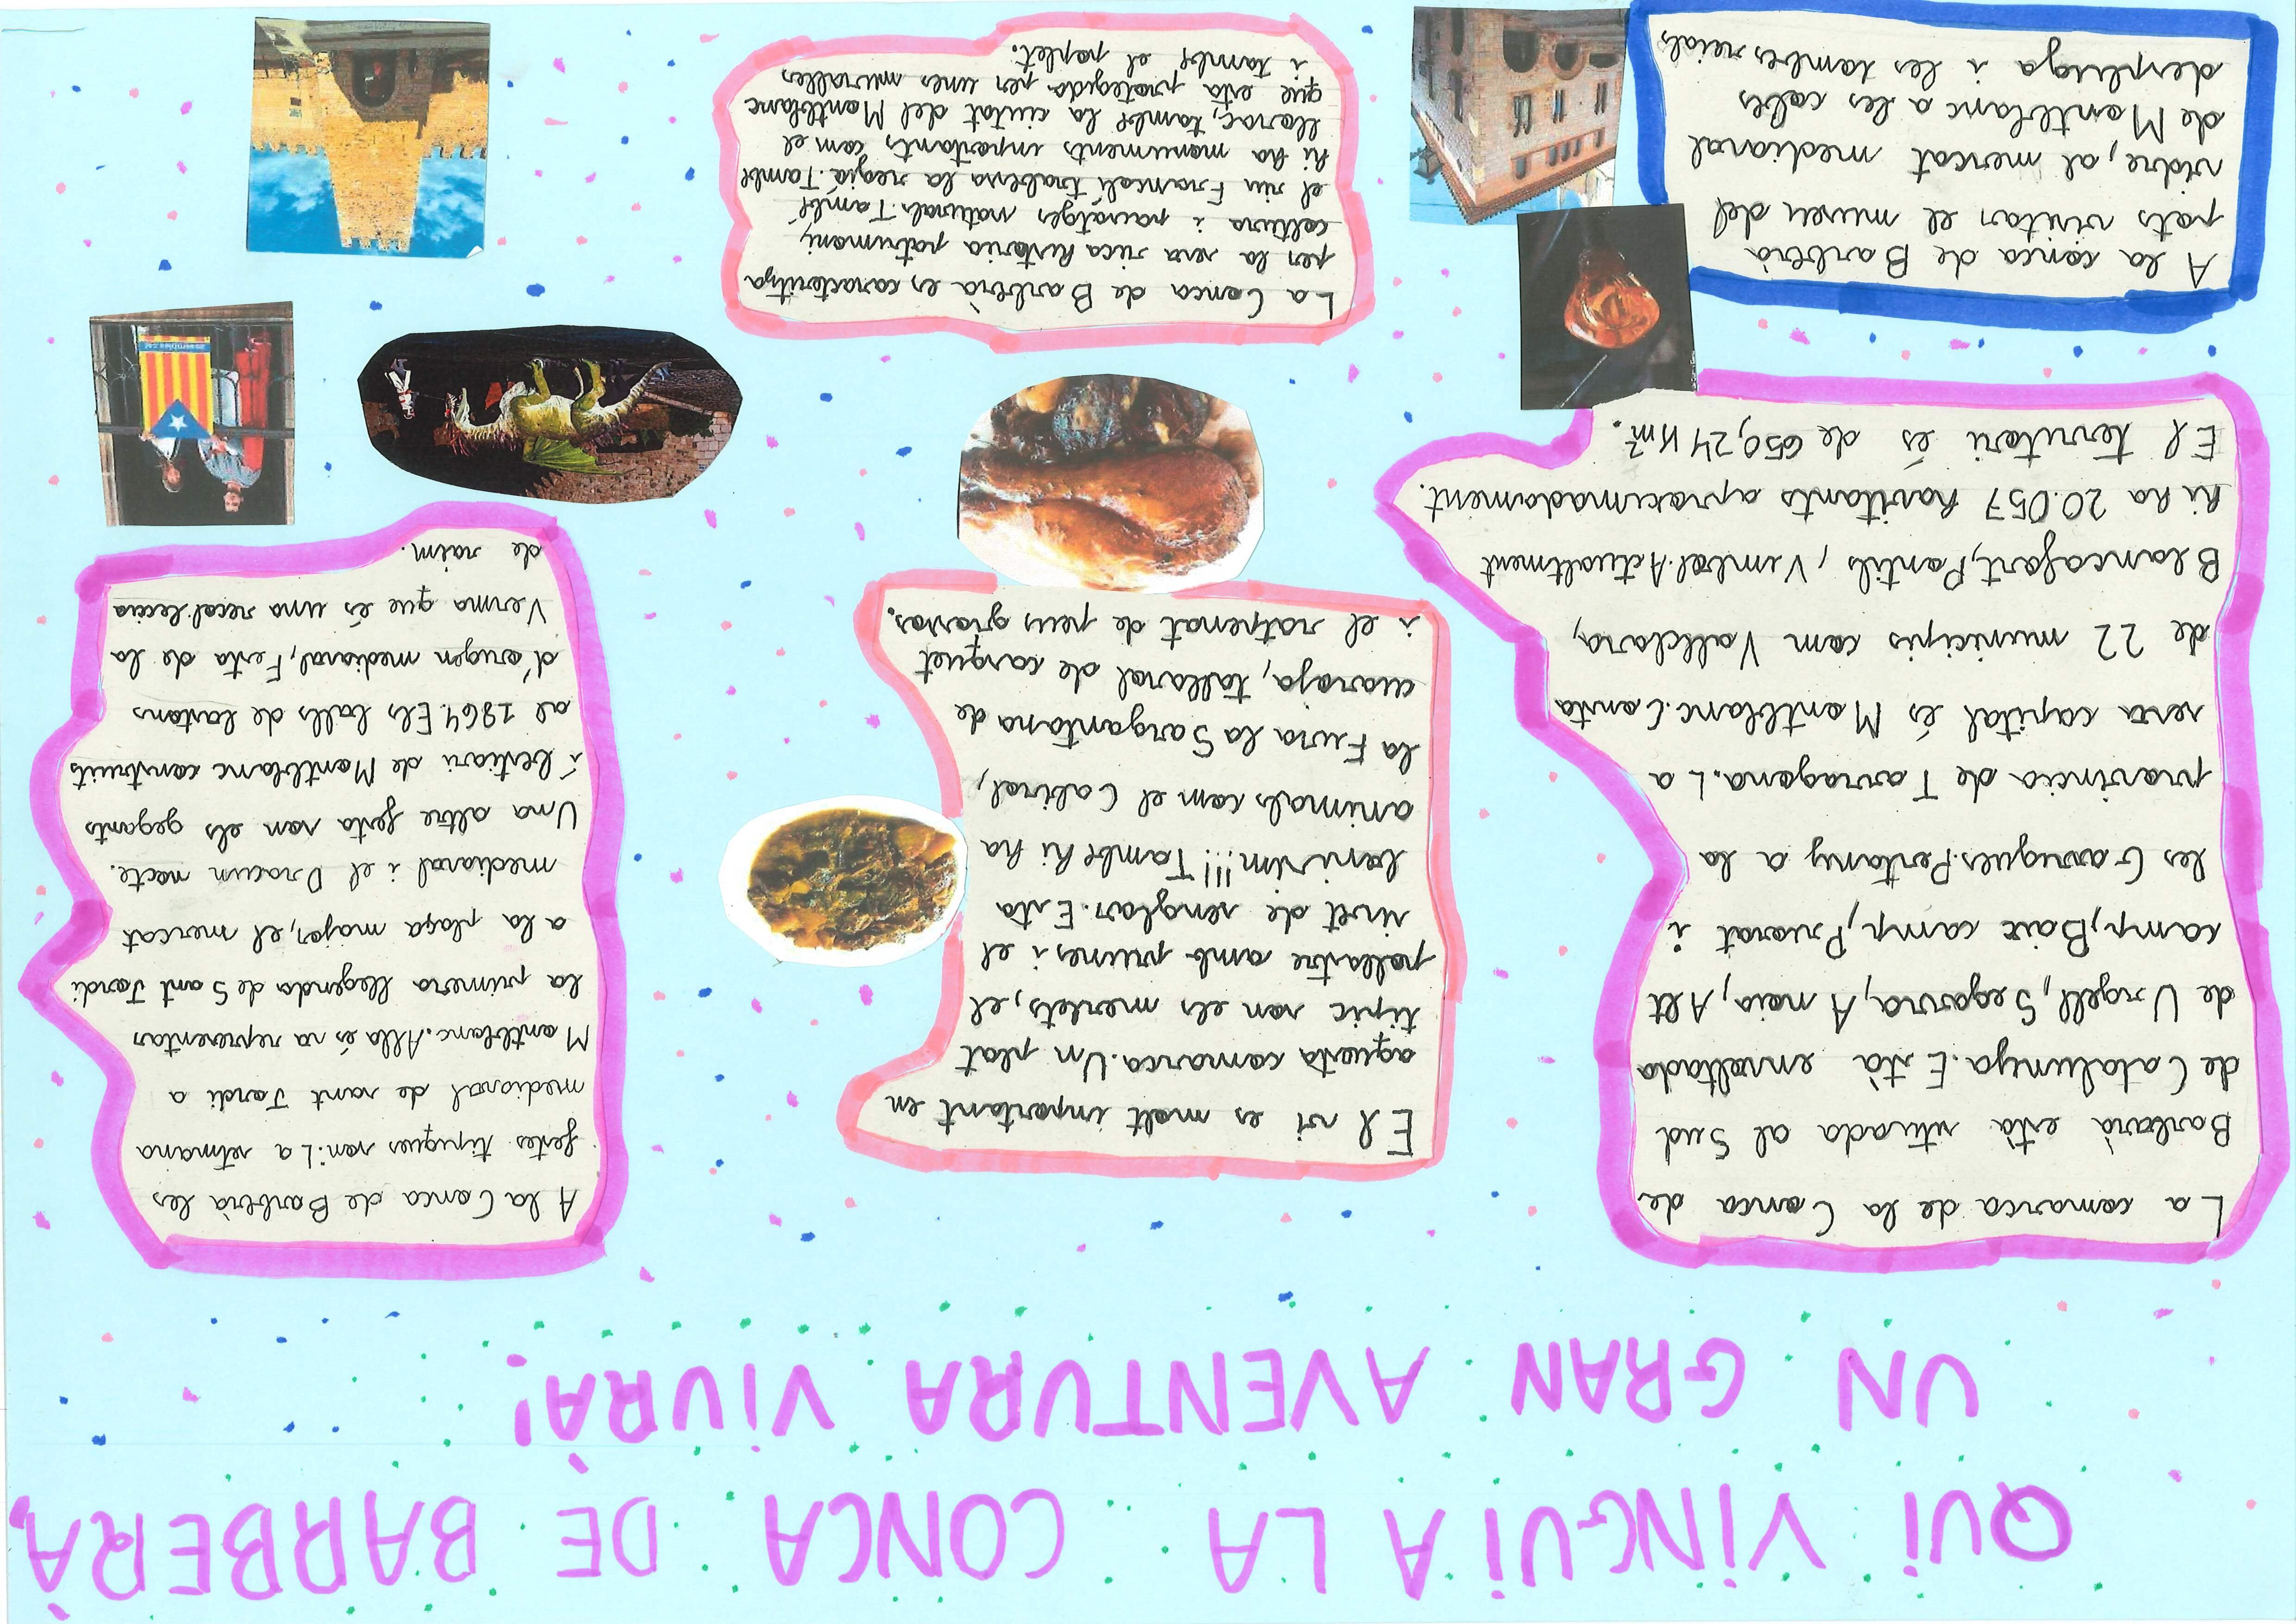 QUI VINGUI A LA CONCA DE BARBERÀ,
UN GRAN AVENTURA VIURÀ!
La comarca de la Conca de
Barbarà està situada al Sud
de Catalunya. Està envoltada
de Urgell, Segarra, Anoia, Alt
camp, Baix camp, Priorat i
les Garrigues. Pertany a la
província de Tarragona. La
seva capital és Montblanc. Consta
de 22 municipis com Vallclara,
Blancafort, Pontils, Vimbol. Actualtment
hi ha 20.057 havitants aproximadament.
El territori és de 650,24 Km².
A la conca de Barbèrà
pots visitar el museu del
vidre, al mercat medioval
de Montblanc a les cobes
despluga i les tombes reials
El vi es molt inportant en
aquesta comarca. Un plat
típic son els merlets, el
pollastre amb prunes i el
sivet de senglar. Està
bonisim!!! També hi ha
animals com el Cabirol,
la Fura la Sargantana de
cuaroja, tallarol de casquet
i el ratpenat de peus grossos.
La Conca de Barbèrà es caracteritza
per la seva rica historia patrimoni
cultura i paisatges naturals. També
el riu Francolí trabesa la regió. També
hi ha monuments inportants com el
llorac, també la ciutat del Montblanc
que està protegida per unes muralles
i també el poplet.
A la Conca de Barbèrà les
festes tipiques son: La setmana
medioval de sant Jordi a
Montblanc. Alla és va representar
la primera llegenda de Sant Jordi
a la plaça major, el mercat
medioval i el Dracum nocte.
Una altre festa son els gegants
i bestiari de Montblanc construits
al 1864. Els balls de bastons
d'origen medioval, Festa de la
Verma que és una recol·leccio
de raïm.
assemblea.cat